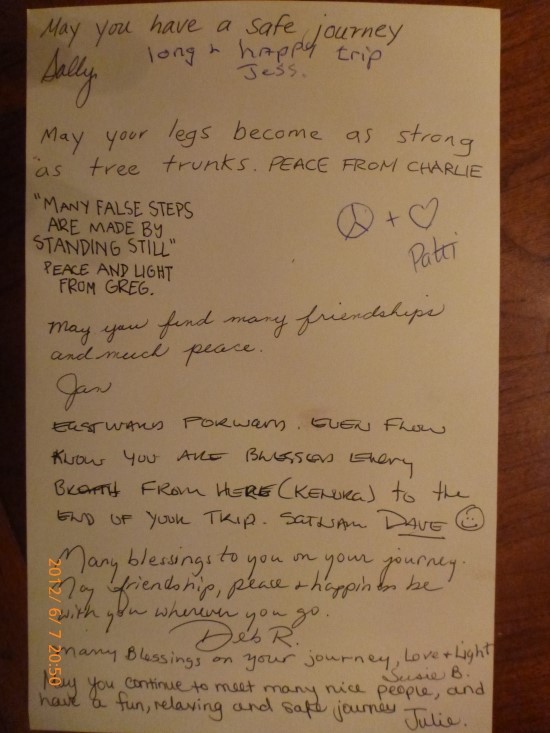 May you have a safe journey
Sally
long + happy trip
Jess.
May your legs become as strong
as tree trunks. PEACE FROM CHARLIE
"MANY FALSE STEPS
ARE MADE BY
STANDING STILL"
PEACE AND LIGHT
FROM GREG.
+
Patti
May you find many friendships
and much peace.
Jan
EASTWARD FORWARD. EVEN FLOW
KNOW YOU ARE BLESSED EVERY
BREATH FROM HERE (KENORA) to the
END OF YOUR TRIP. SATNAM DAVE
Many blessings to you on your journey.
May friendship, peace + happiness be
with you wherever you go.
Deb R.
Many Blessings on your journey, Love + Light
Susie B.
May you continue to meet many nice people, and
have a fun, relaxing and safe journey
Julie.
2012/6/7 20:50